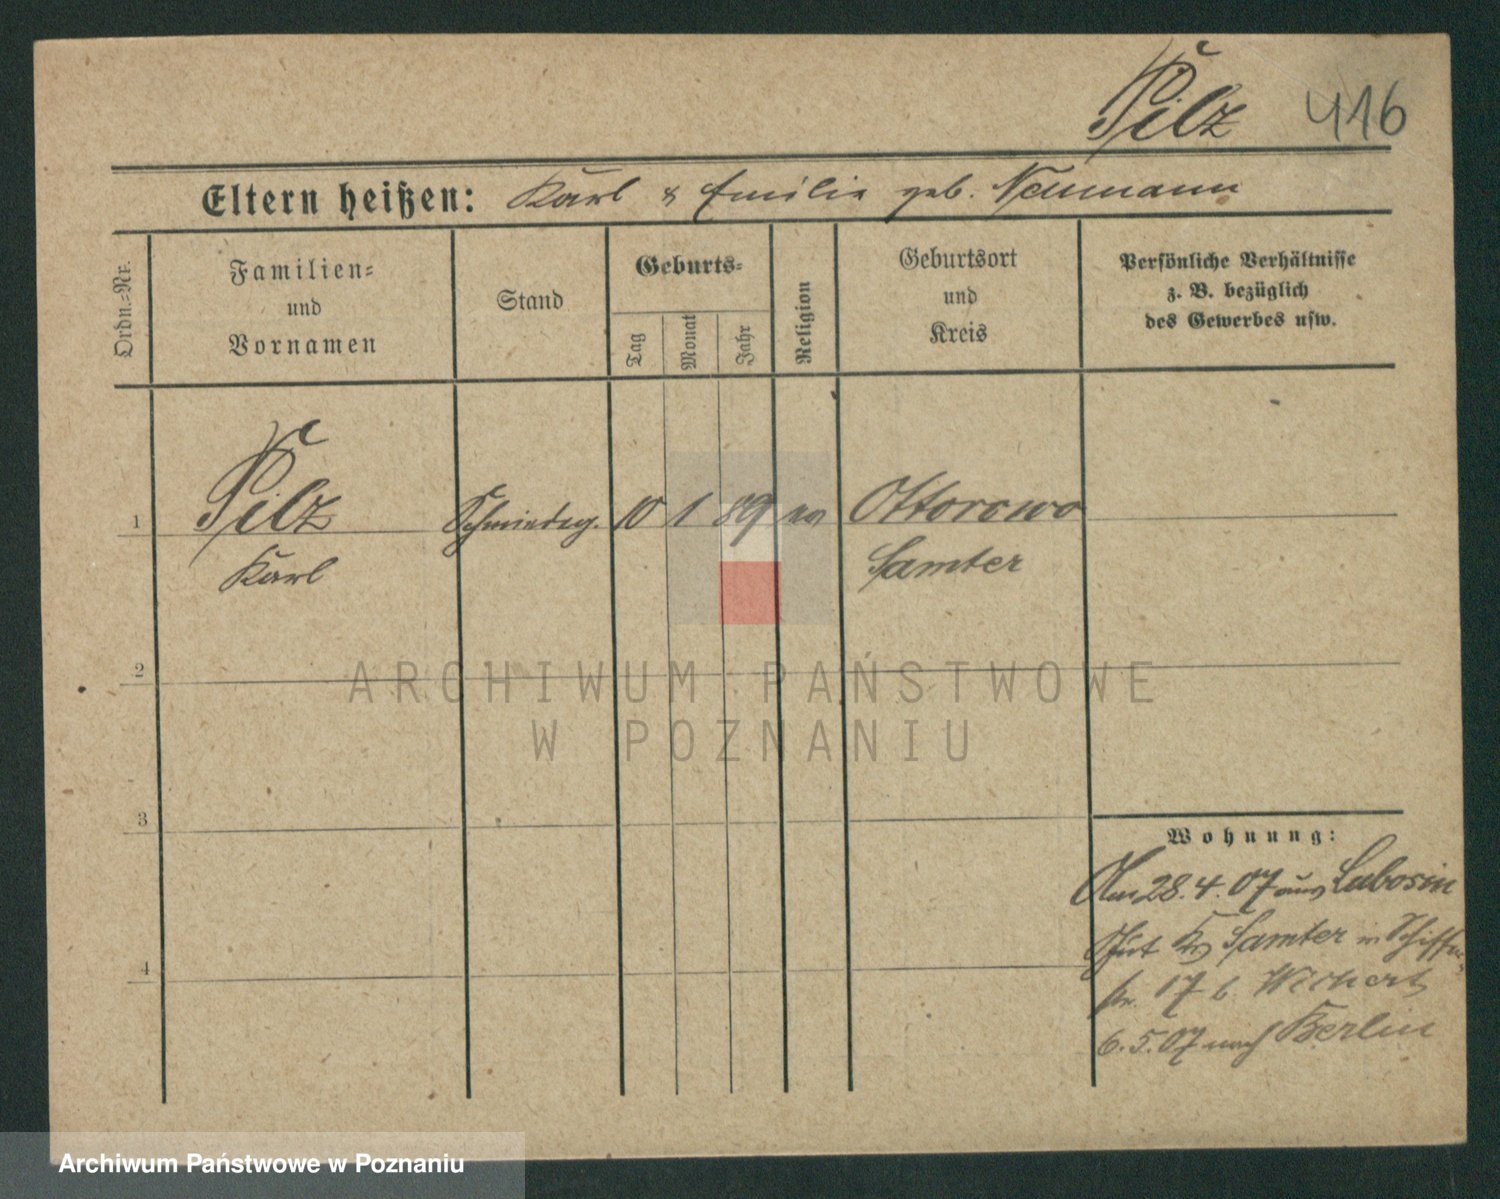 Pilz 416
Eltern heißen: Karl & Emilie geb. Neumann
Ordn.=Nr.
Familien=
und
Vornamen
Stand
Geburts=
Tag
Monat
Jahr
Religion
Geburtsort
und
Kreis
Persönliche Verhältnisse
z. B. bezüglich
des Gewerbes usw.
1 Pilz Schmiedeg. 10 1 89 ev Ottorowo
Karl Samter
2
3
4
Wohnung:
Am 28.4.07 aus Lubosin
Gut Kr Samter in Schiffer
str. 17 b. Wichert
6.5.07 nach Berlin
ARCHIWUM PAŃSTWOWE
W POZNANIU
Archiwum Państwowe w Poznaniu